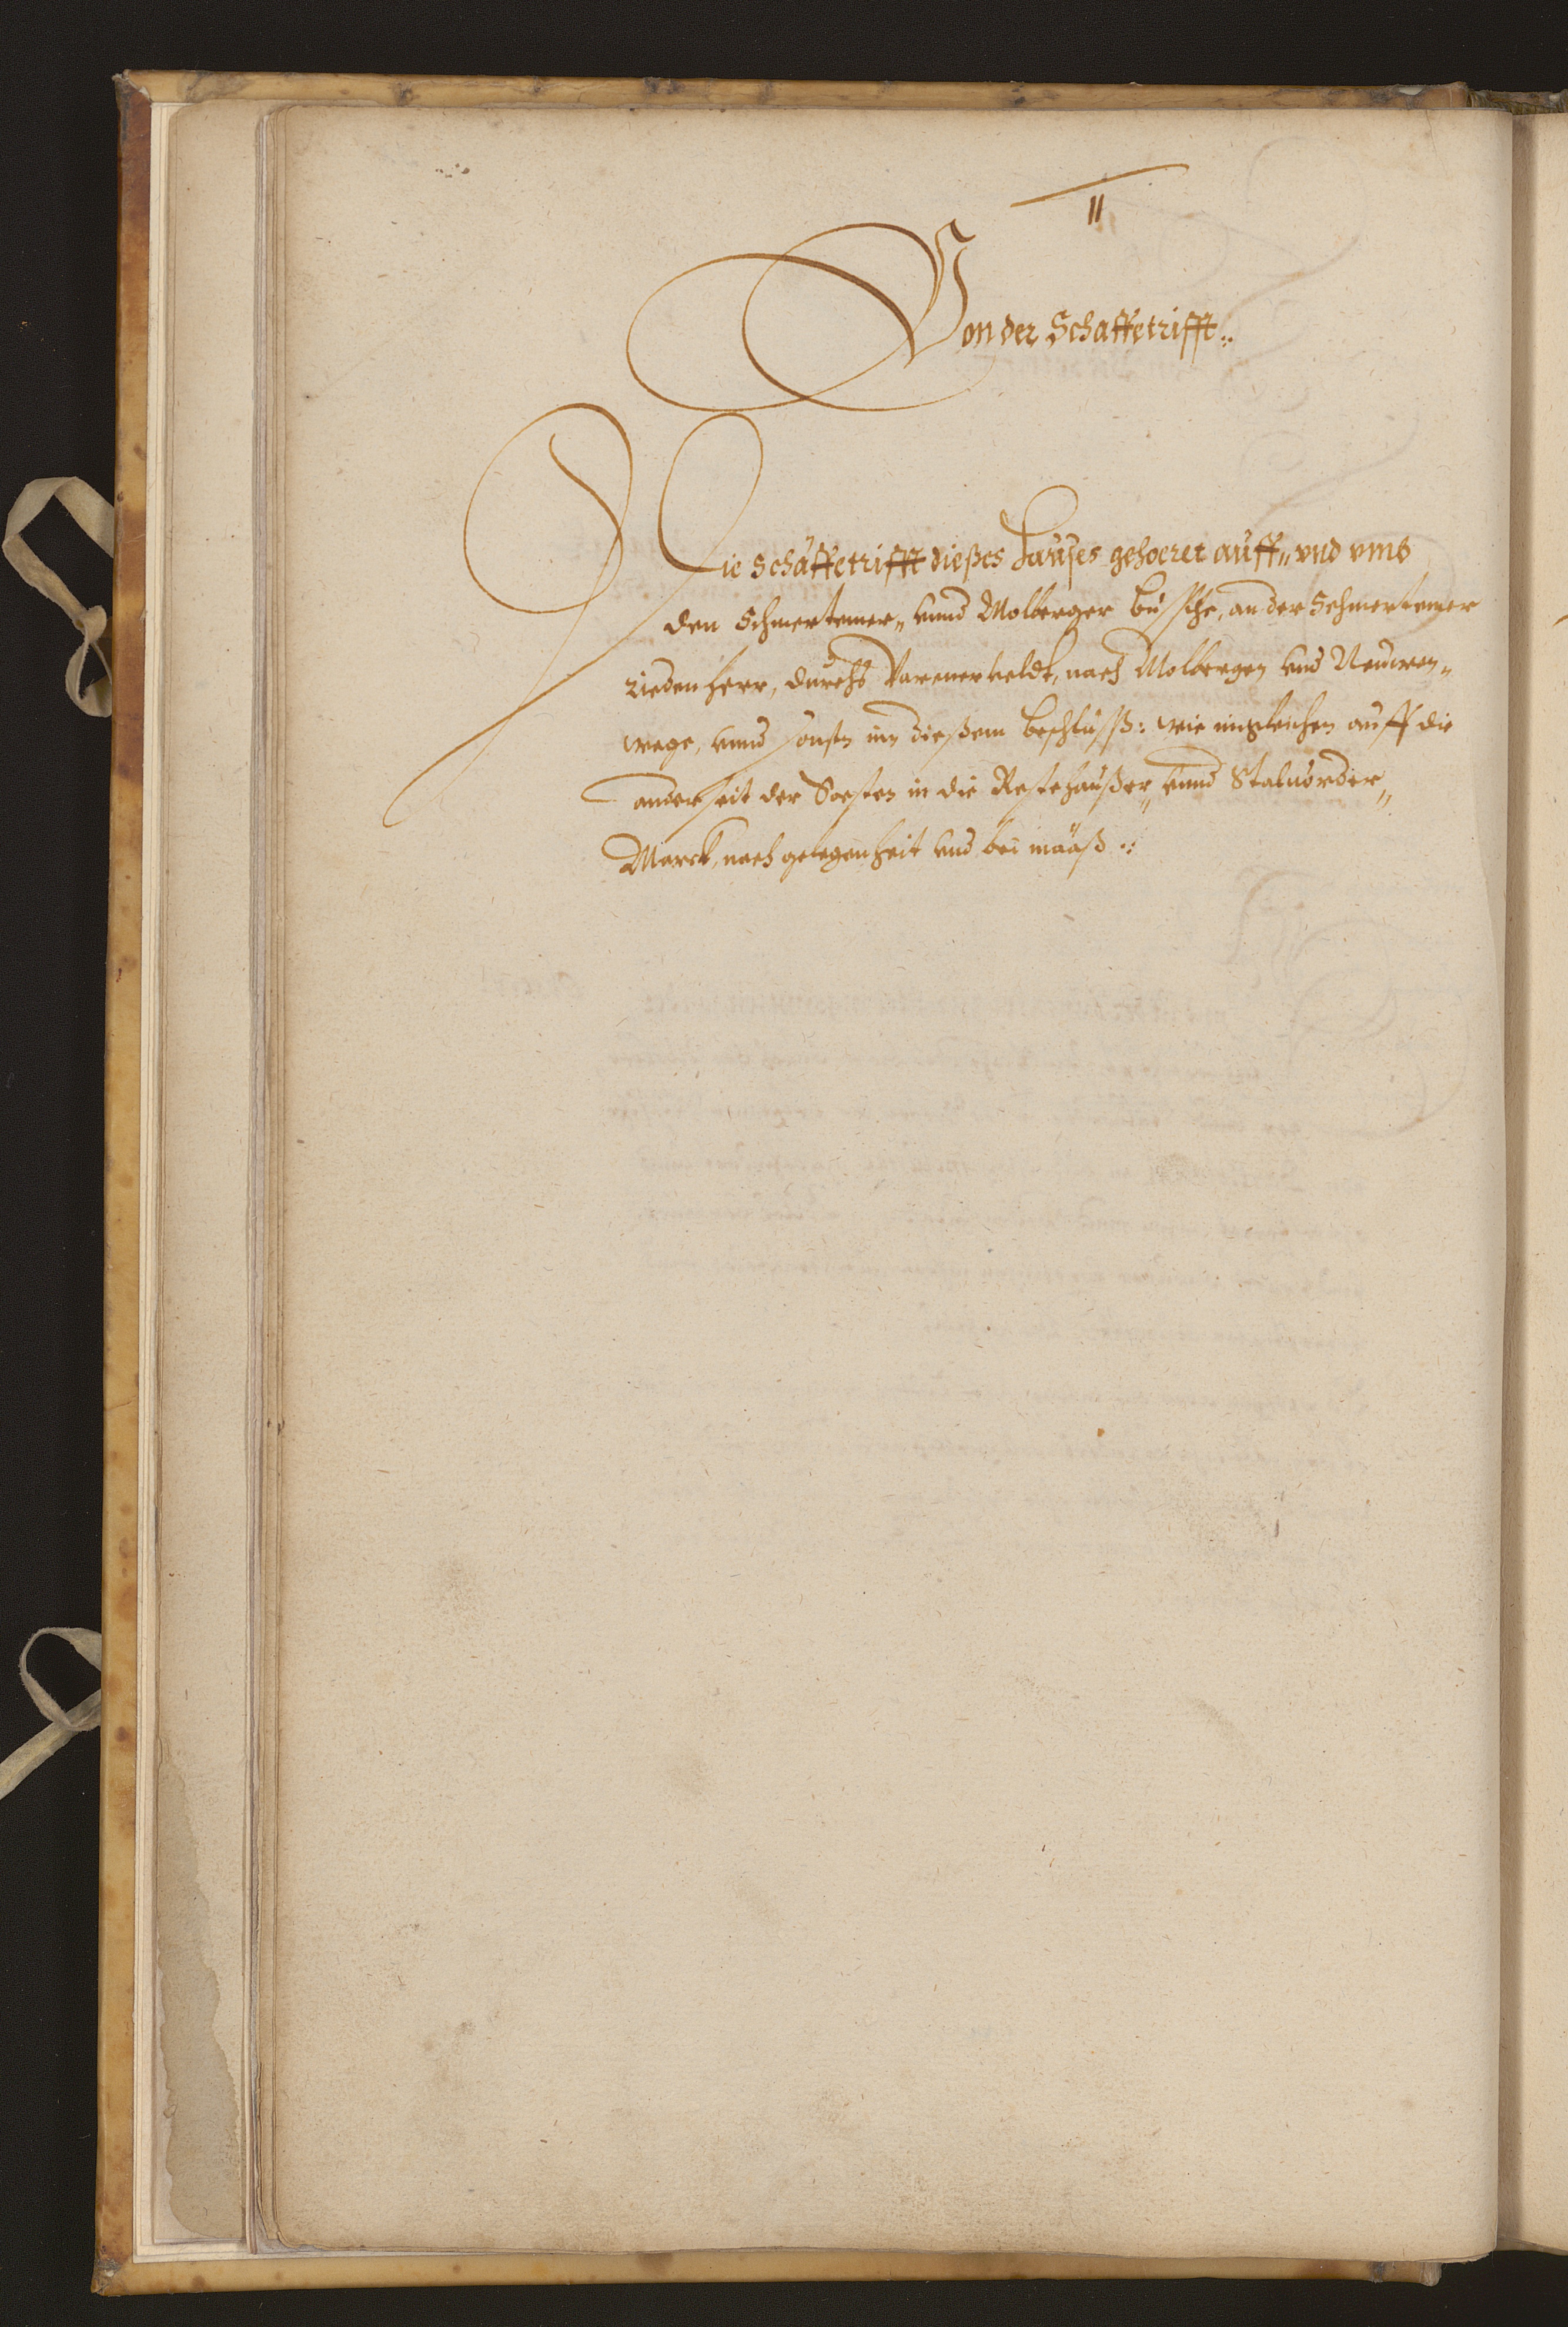 II
Von der Schaffetrifft..
Die Schaffetrifft dießes Hauses gehoeret auff„ vnd vmb
den Schmertemer„ vnnd Molberger büsche, an der Schmertemer
rieden herr, durchs Varenerveldt, nach Molbergen vnd Neuwen„
wege, vnnd sonsten inn dießem beschlusß: wie imgleichen auff die
anderseit der Soesten in die Restehaußer„ vnnd Stalvorder„
Marck, nach gelegenheit vnd bei maaß ..